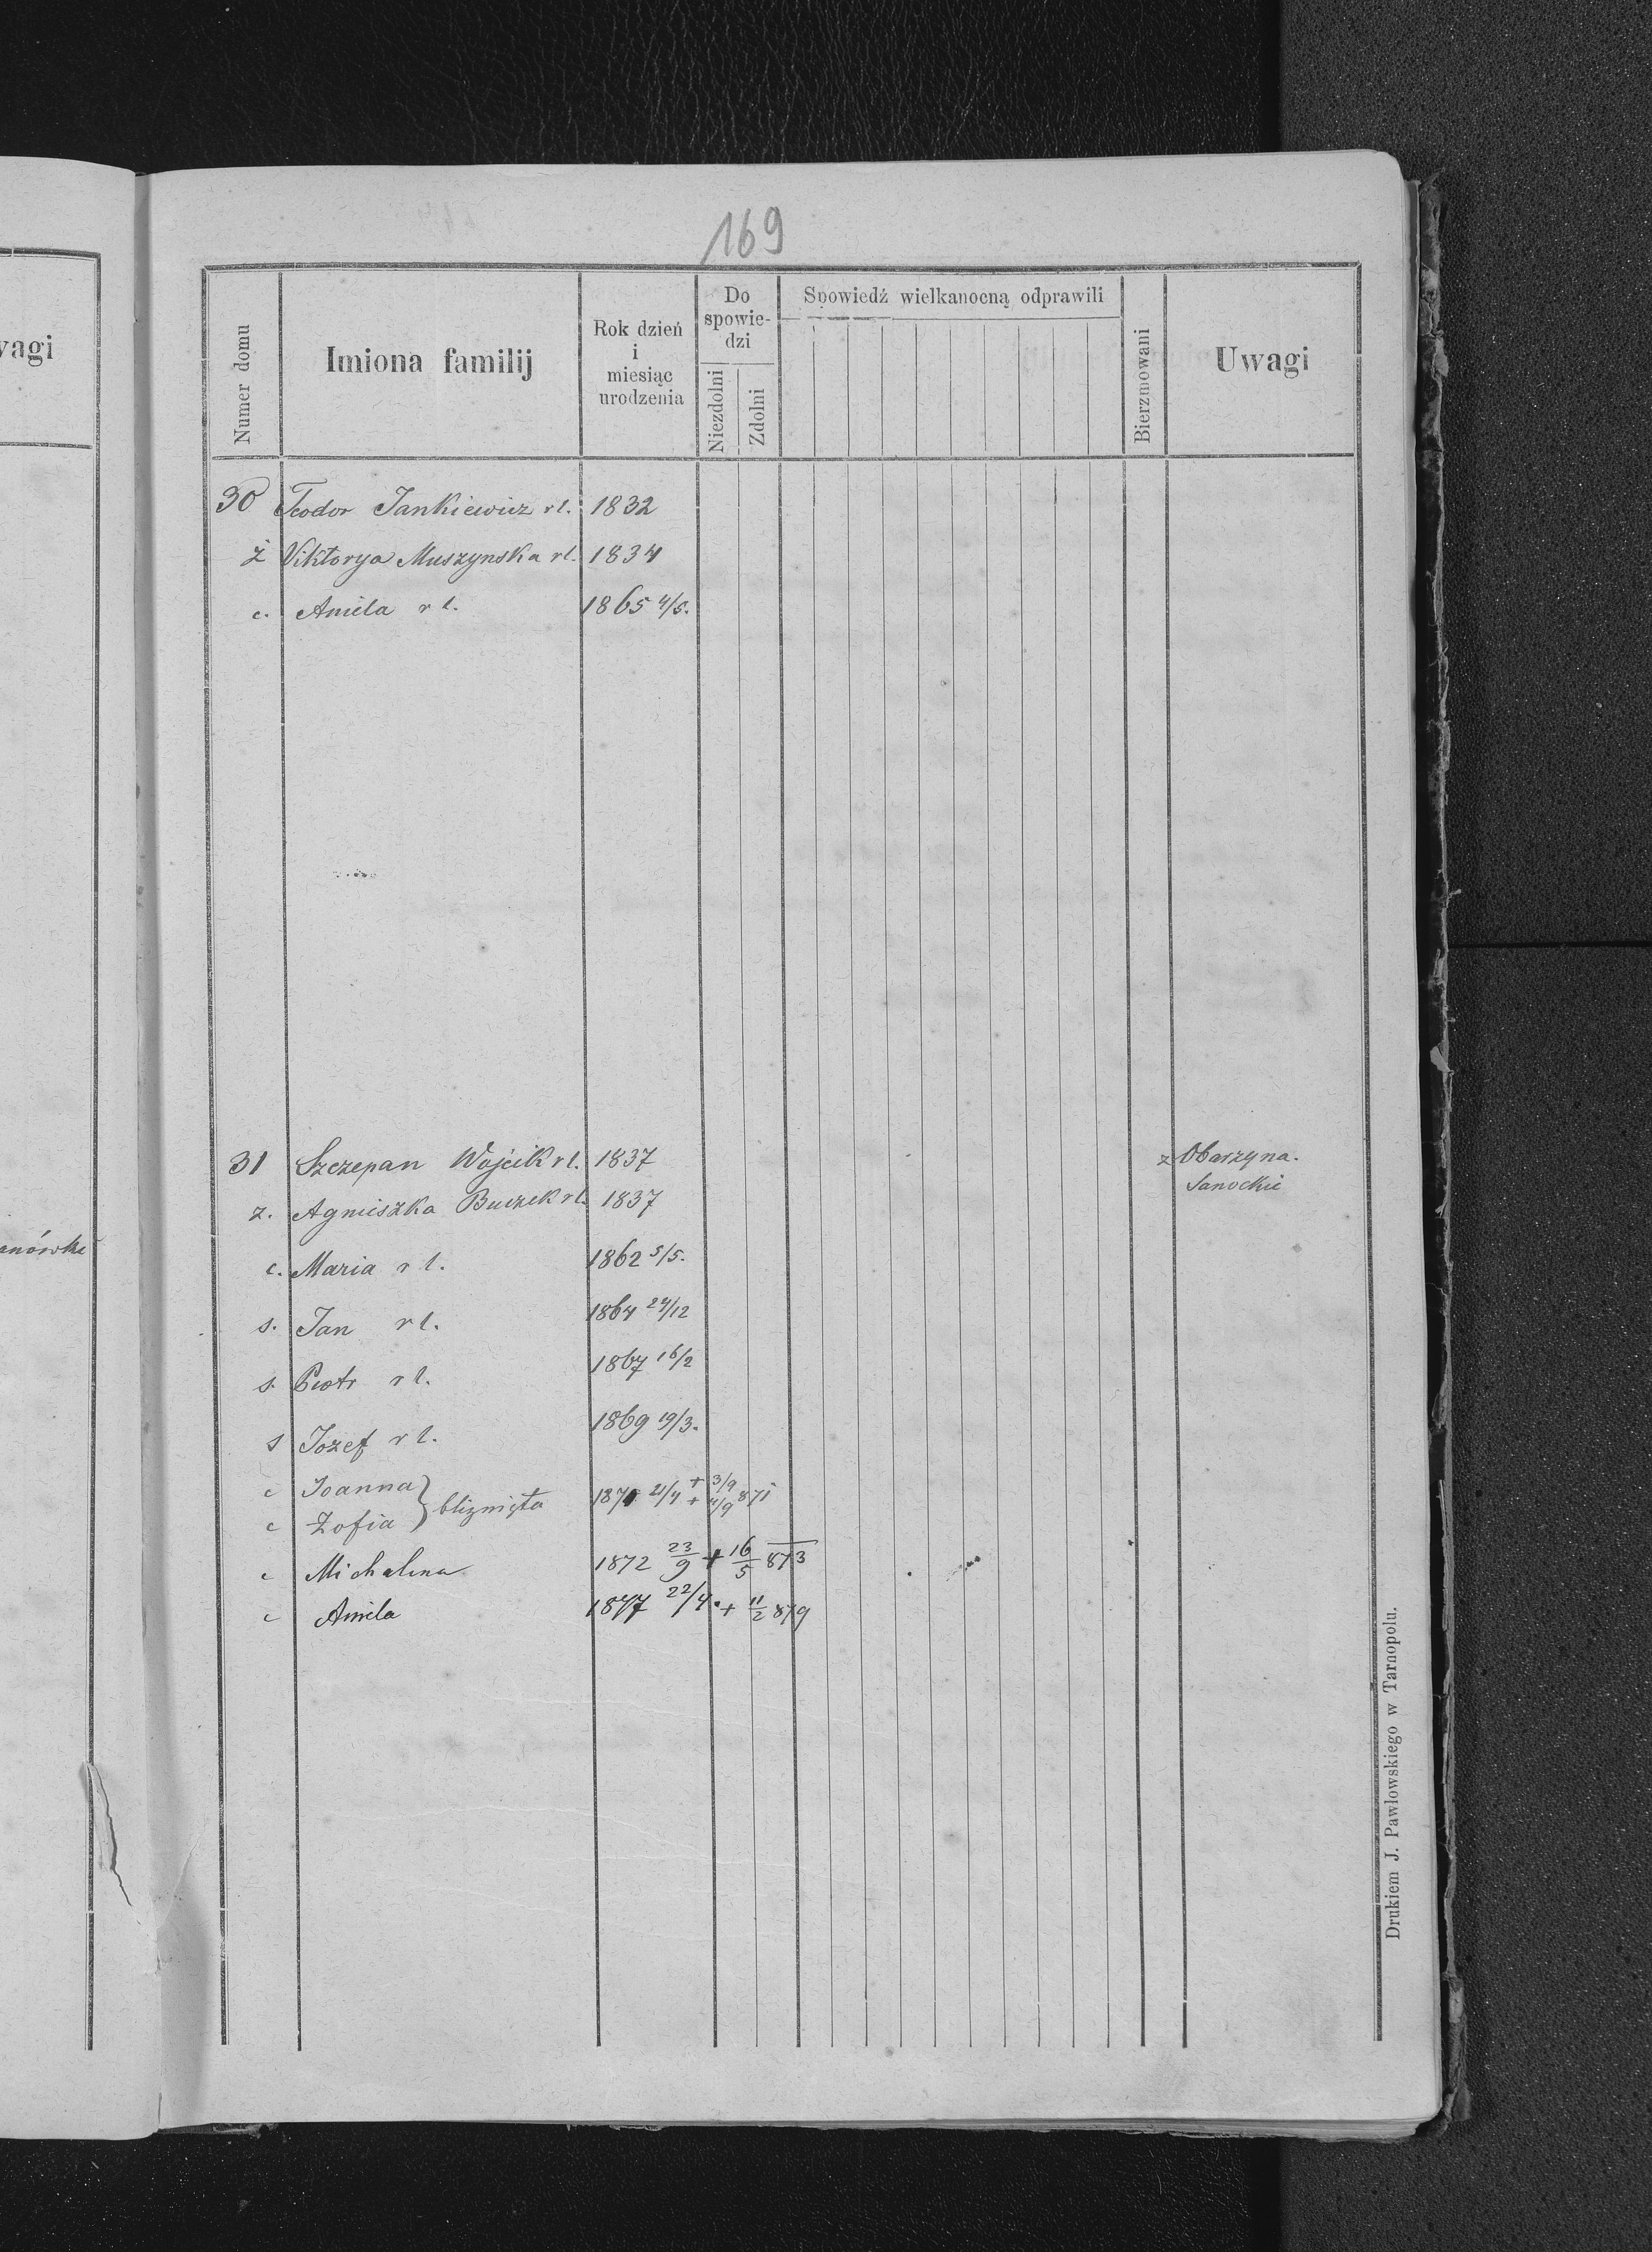 169
wagi
Numer domu
Imiona familij
Rok dzień
i
miesiąc
urodzenia
Do
spowie-
dzi
Niezdolni
Zdolni
Spowiedź wielkanocną odprawili
Bierzmowani
Uwagi
30 Teodor Jankiewicz rl. 1832
ż Viktorya Muszynska rl. 1834
c. Aniela rl. 1865 4/5.
31 Szczepan Wojcik rl. 1837 z Obarzyna.
Sanockie
z. Agnieszka Buczek rl. 1837
c. Maria rl. 1862 5/5.
s. Jan rl. 1864 24/12
s. Piotr rl. 1867 16/2
s Jozef rl. 1869 19/3.
c Joanna } bliznięta 1871 21/4 + 3/9
c Zofia + 4/9 871
c Michalina 1872 23/9 + 16/5 873
c Aniela 1877 22/4. + 11/2 879
Drukiem J. Pawłowskiego w Tarnopolu.